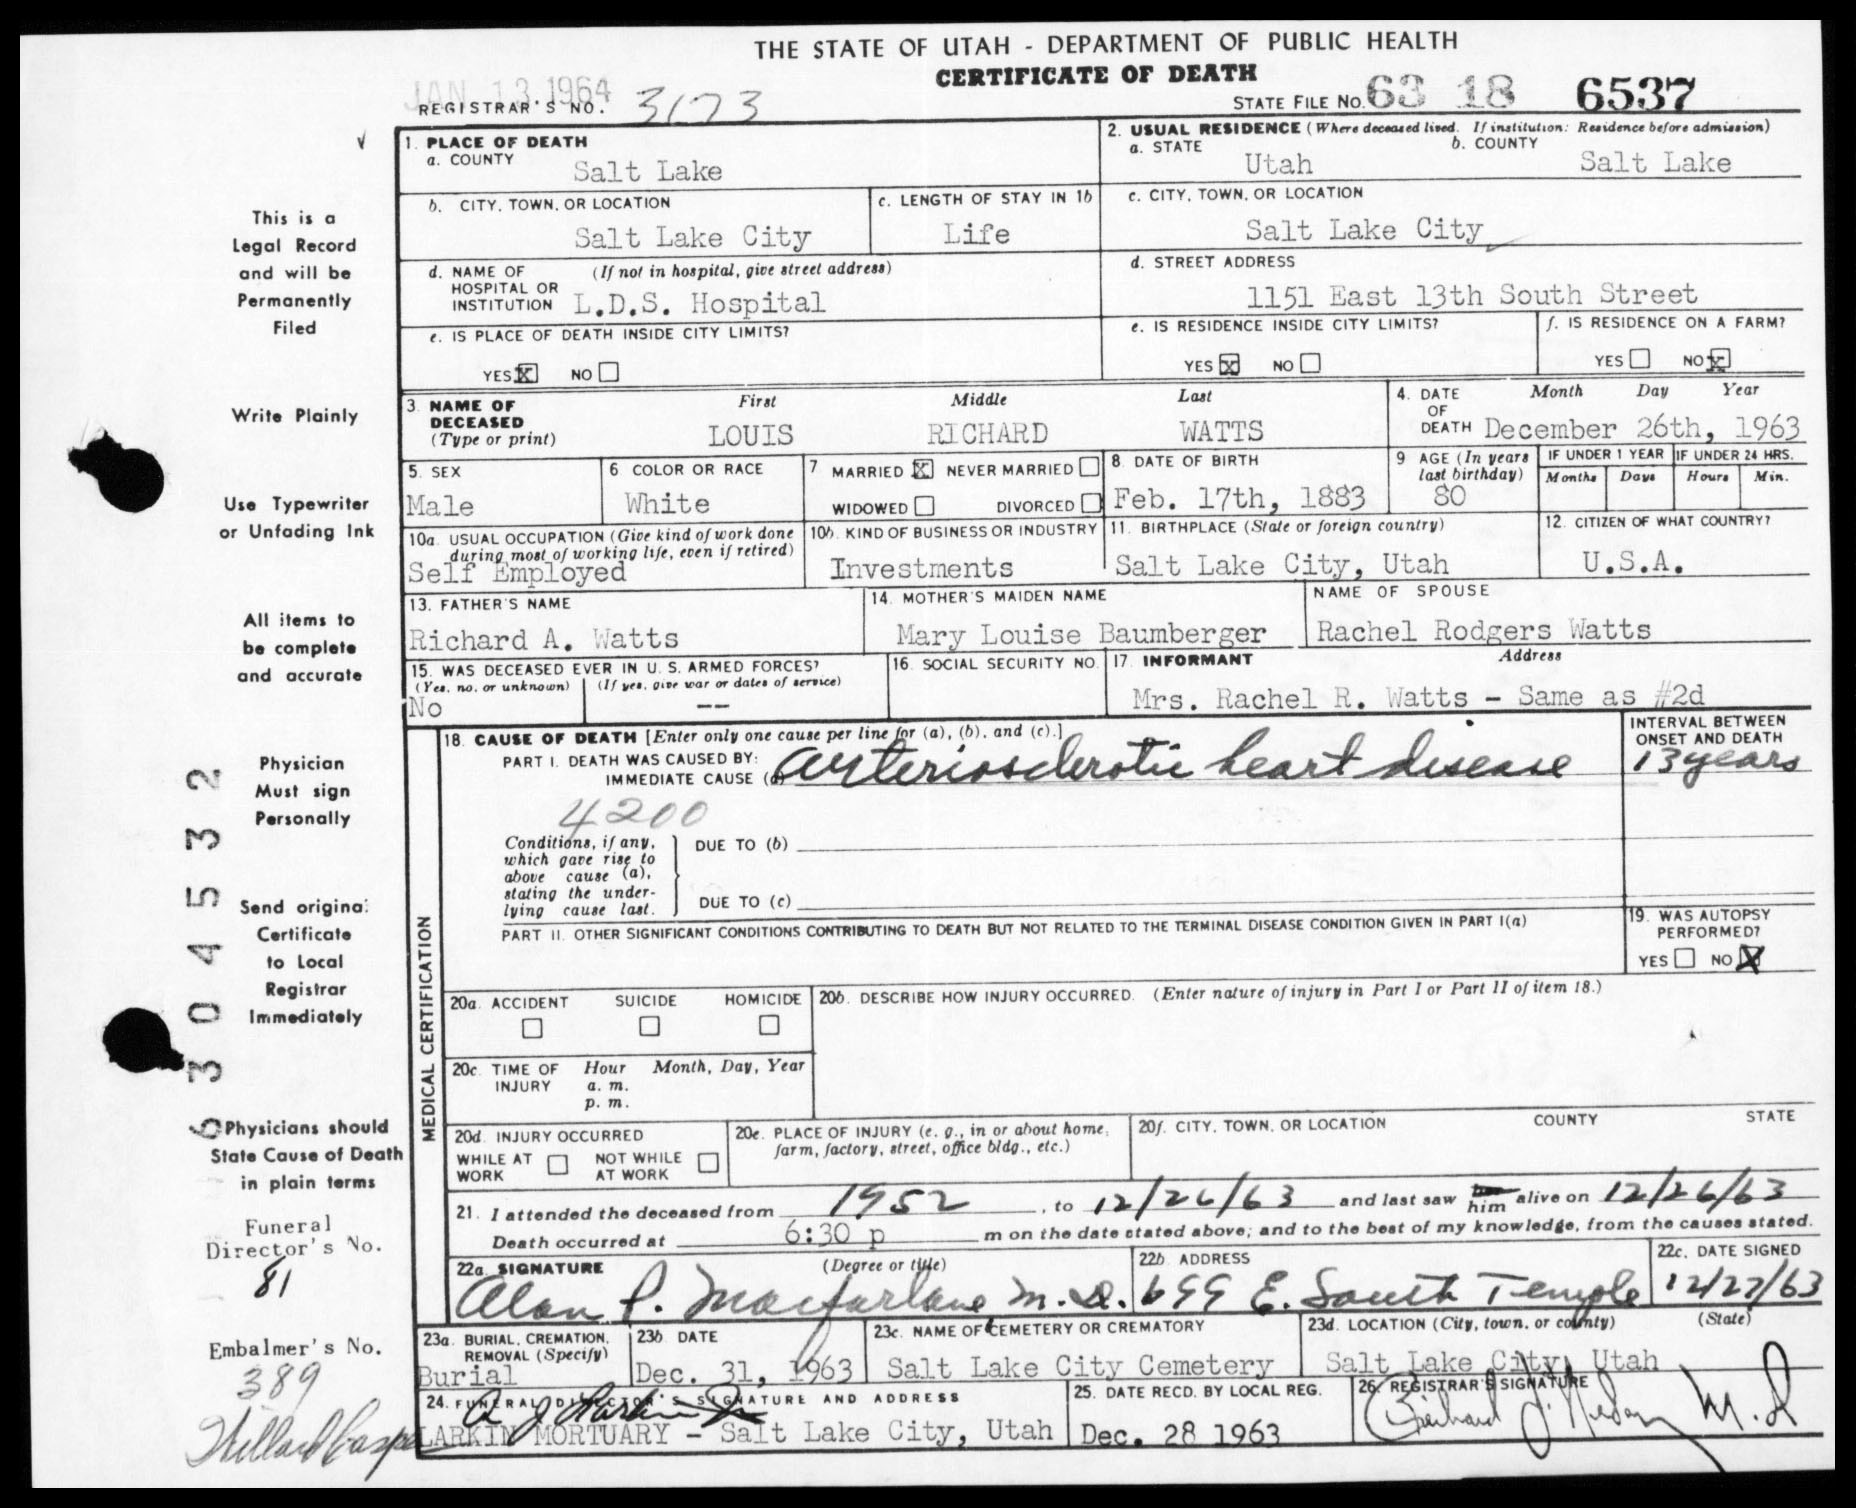 THE STATE OF UTAH - DEPARTMENT OF PUBLIC HEALTH
CERTIFICATE OF DEATH
JAN 13 1964
REGISTRAR'S NO. 3173
STATE FILE NO. 63 18 6537
1. PLACE OF DEATH
a. COUNTY
Salt Lake
2. USUAL RESIDENCE (Where deceased lived. If institution: Residence before admission)
a. STATE
Utah
b. COUNTY
Salt Lake
b. CITY, TOWN, OR LOCATION
Salt Lake City
c. LENGTH OF STAY IN 1b
Life
c. CITY, TOWN, OR LOCATION
Salt Lake City
d. NAME OF (If not in hospital, give street address)
HOSPITAL OR
INSTITUTION L.D.S. Hospital
d. STREET ADDRESS
1151 East 13th South Street
e. IS PLACE OF DEATH INSIDE CITY LIMITS?
YES X NO
e. IS RESIDENCE INSIDE CITY LIMITS?
YES X NO
f. IS RESIDENCE ON A FARM?
YES NO X
3. NAME OF
DECEASED
(Type or print)
First Middle Last
LOUIS RICHARD WATTS
4. DATE
OF
DEATH
Month Day Year
December 26th, 1963
5. SEX
Male
6 COLOR OR RACE
White
7 MARRIED X NEVER MARRIED
WIDOWED DIVORCED
8. DATE OF BIRTH
Feb. 17th, 1883
9 AGE (In years
last birthday)
80
IF UNDER 1 YEAR
Months Days
IF UNDER 24 HRS.
Hours Min.
10a. USUAL OCCUPATION (Give kind of work done
during most of working life, even if retired)
Self Employed
10b. KIND OF BUSINESS OR INDUSTRY
Investments
11. BIRTHPLACE (State or foreign country)
Salt Lake City, Utah
12. CITIZEN OF WHAT COUNTRY?
U.S.A.
13. FATHER'S NAME
Richard A. Watts
14. MOTHER'S MAIDEN NAME
Mary Louise Baumberger
NAME OF SPOUSE
Rachel Rodgers Watts
15. WAS DECEASED EVER IN U. S. ARMED FORCES?
(Yes, no, or unknown) (If yes, give war or dates of service)
No --
16. SOCIAL SECURITY NO.
17. INFORMANT Address
Mrs. Rachel R. Watts - Same as #2d
MEDICAL CERTIFICATION
18. CAUSE OF DEATH [Enter only one cause per line for (a), (b), and (c).]
PART I. DEATH WAS CAUSED BY:
IMMEDIATE CAUSE (a) arteriosclerotic heart disease
INTERVAL BETWEEN
ONSET AND DEATH
13 years
4200
Conditions, if any,
which gave rise to
above cause (a),
stating the under-
lying cause last.
DUE TO (b)
DUE TO (c)
PART II. OTHER SIGNIFICANT CONDITIONS CONTRIBUTING TO DEATH BUT NOT RELATED TO THE TERMINAL DISEASE CONDITION GIVEN IN PART I(a)
19. WAS AUTOPSY
PERFORMED?
YES NO X
20a. ACCIDENT SUICIDE HOMICIDE
20b. DESCRIBE HOW INJURY OCCURRED. (Enter nature of injury in Part I or Part II of item 18.)
20c. TIME OF
INJURY
Hour Month, Day, Year
a. m.
p. m.
20d. INJURY OCCURRED
WHILE AT
WORK
NOT WHILE
AT WORK
20e. PLACE OF INJURY (e. g., in or about home,
farm, factory, street, office bldg., etc.)
20f. CITY, TOWN, OR LOCATION COUNTY STATE
21. I attended the deceased from 1952, to 12/26/63 and last saw him alive on 12/26/63
Death occurred at 6:30 p m on the date stated above; and to the best of my knowledge, from the causes stated.
22a. SIGNATURE (Degree or title)
Alan P. Macfarlane M.D.
22b. ADDRESS
699 E. South Temple
22c. DATE SIGNED
12/27/63
23a. BURIAL, CREMATION,
REMOVAL (Specify)
Burial
23b. DATE
Dec. 31, 1963
23c. NAME OF CEMETERY OR CREMATORY
Salt Lake City Cemetery
23d. LOCATION (City, town, or county) (State)
Salt Lake City, Utah
24. FUNERAL DIRECTOR'S SIGNATURE AND ADDRESS
LARKIN MORTUARY - Salt Lake City, Utah
25. DATE RECD. BY LOCAL REG.
Dec. 28 1963
26. REGISTRAR'S SIGNATURE
M.D
This is a
Legal Record
and will be
Permanently
Filed
Write Plainly
Use Typewriter
or Unfading Ink
All items to
be complete
and accurate
Physician
Must sign
Personally
Send original
Certificate
to Local
Registrar
Immediately
Physicians should
State Cause of Death
in plain terms
Funeral
Director's No.
81
Embalmer's No.
389
6304532